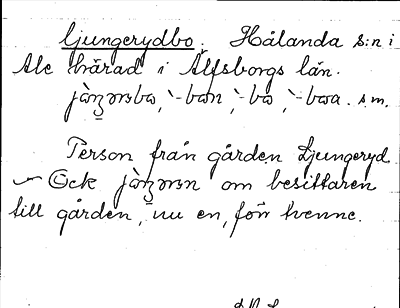 ljungerydbo. Hålanda s:n i
Ale härad i Älfsborgs län.
jàŋərsbo, `-bon, `-bo, `-boa. s.m.
Person från gården Ljungeryd
Ock jàŋərsn om besittaren
till gården, nu en, förr tvenne.